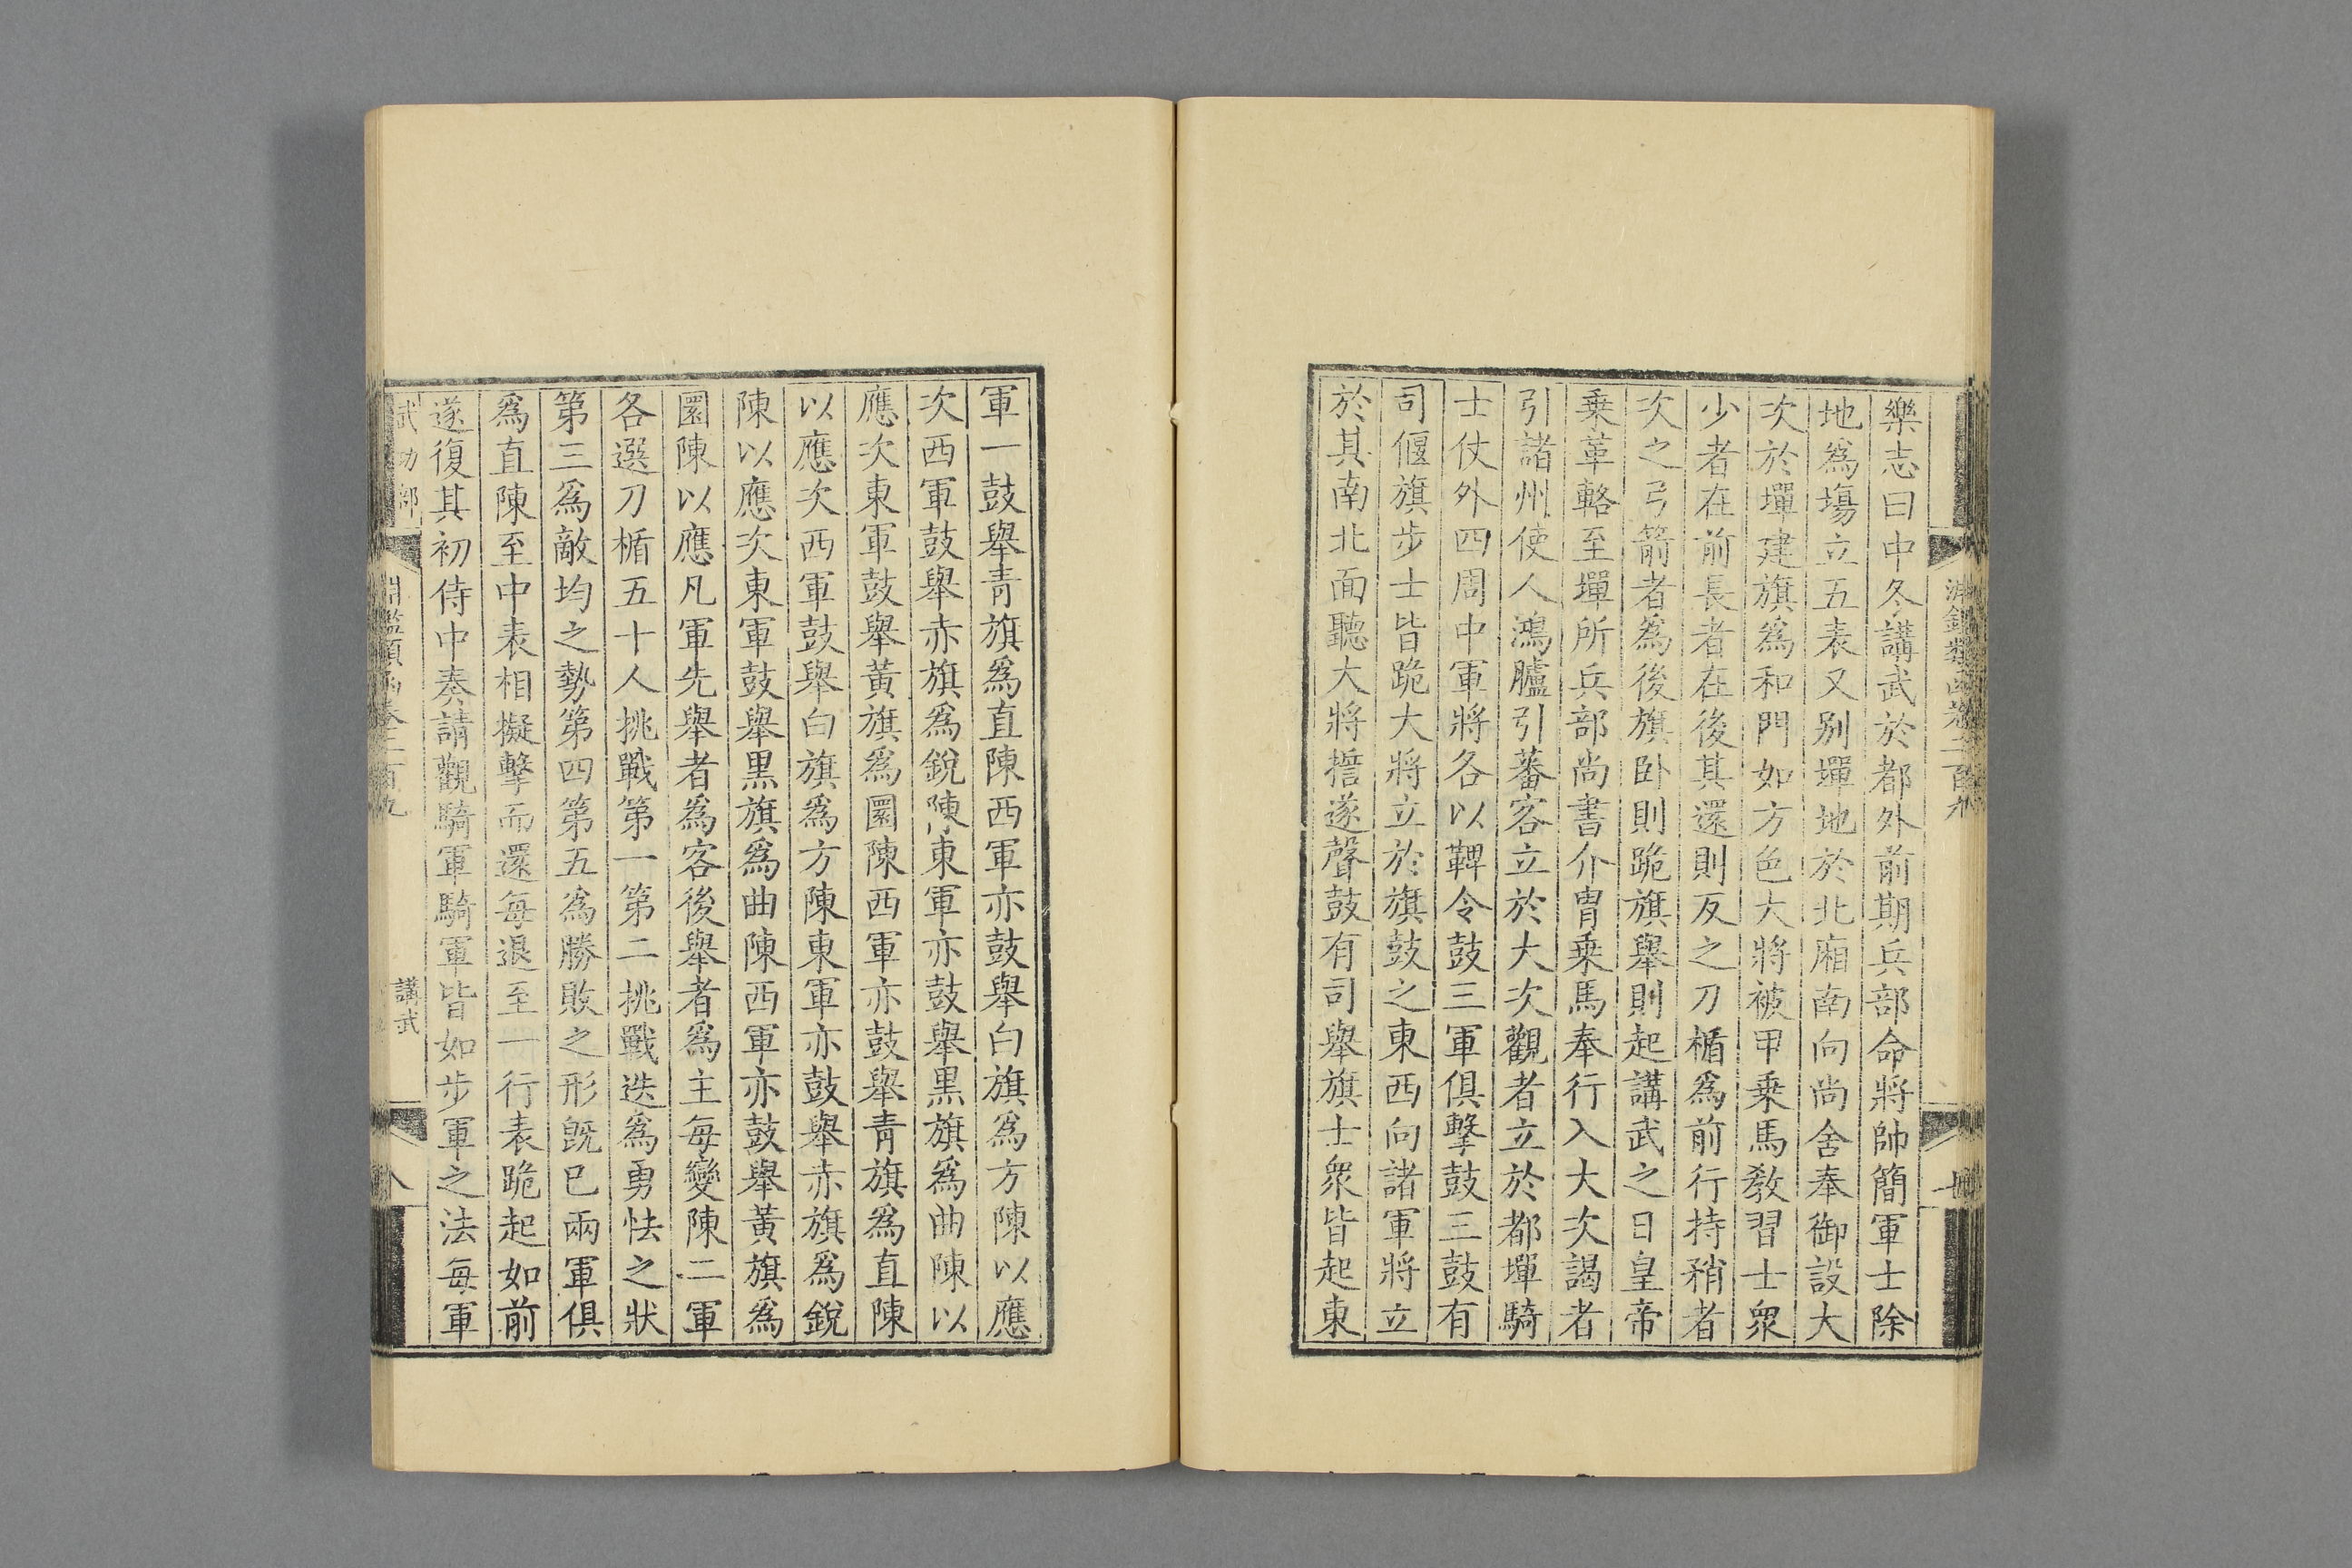 樂志曰中冬講武於都外前期兵部命將帥簡軍士除
地爲塲立五表又别墠地於北廂南向尚舍奉御設大
次於墠建旗爲和門如方色大將被甲乗馬教習士衆
少者在前長者在後其還則反之刀楯爲前行持矟者
次之弓箭者爲後旗卧則跪旗舉則起講武之日皇帝
乗革輅至墠所兵部尚書介胄乗馬奉行入大次謁者
引諸州使人鴻臚引蕃客立於大次觀者立於都墠騎
士仗外四周中軍將各以鞞令鼓三軍俱擊鼓三鼓有
司偃旗步士皆跪大將立於旗鼓之東西向諸軍將立
於其南北面聽大將誓遂聲鼓有司舉旗士衆皆起東
軍一鼓舉青旗爲直陳西軍亦鼓舉白旗爲方陳以應
次西軍鼓舉赤旗爲銳陳東軍亦鼓舉黒旗爲曲陳以
應次東軍鼓舉黃旗爲圜陳西軍亦鼓舉青旗爲直陳
以應次西軍鼓舉白旗爲方陳東軍亦鼓舉赤旗爲銳
陳以應次東軍鼓舉黒旗爲曲陳西軍亦鼓舉黃旗爲
圜陳以應凡軍先舉者爲客後舉者爲主每變陳二軍
各選刀楯五十人挑戰第一第二挑戰迭爲勇怯之狀
第三爲敵均之勢第四第五爲勝敗之形旣已兩軍俱
爲直陳至中表相擬擊而還每退至一行表跪起如前
遂復其初侍中奏請觀騎軍騎軍皆如步軍之法每軍
武功部 淵鑑類函卷二百九 講武 八